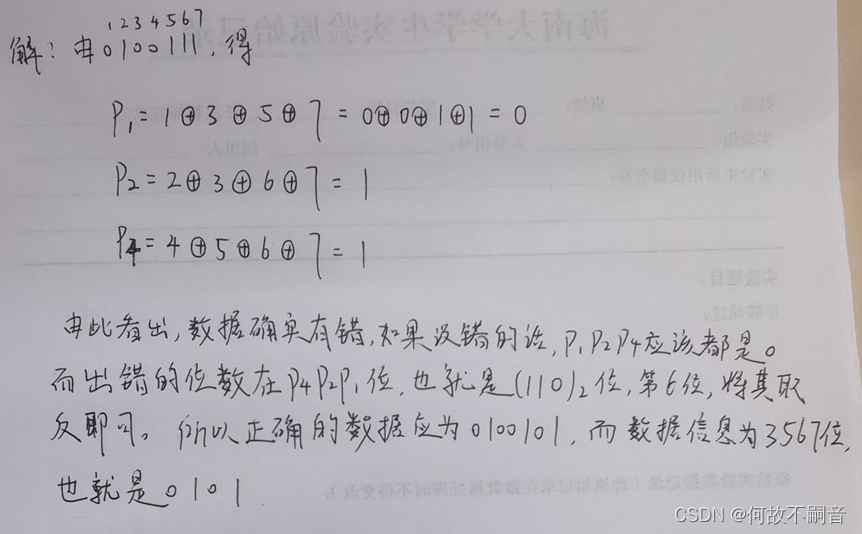 1 2 3 4 5 6 7
解：由0100111，得
P₁=1⊕3⊕5⊕7=0⊕0⊕1⊕1=0
P₂=2⊕3⊕6⊕7=1
P₄=4⊕5⊕6⊕7=1
由此看出，数据确实有错，如果没错的话，P₁P₂P₄应该都是0
而出错的位数在P₄P₂P₁位，也就是(110)₂位，第6位，将其取
反即可。所以正确的数据应为0100101，而数据信息为3567位，
也就是0101
CSDN @何故不嗣音